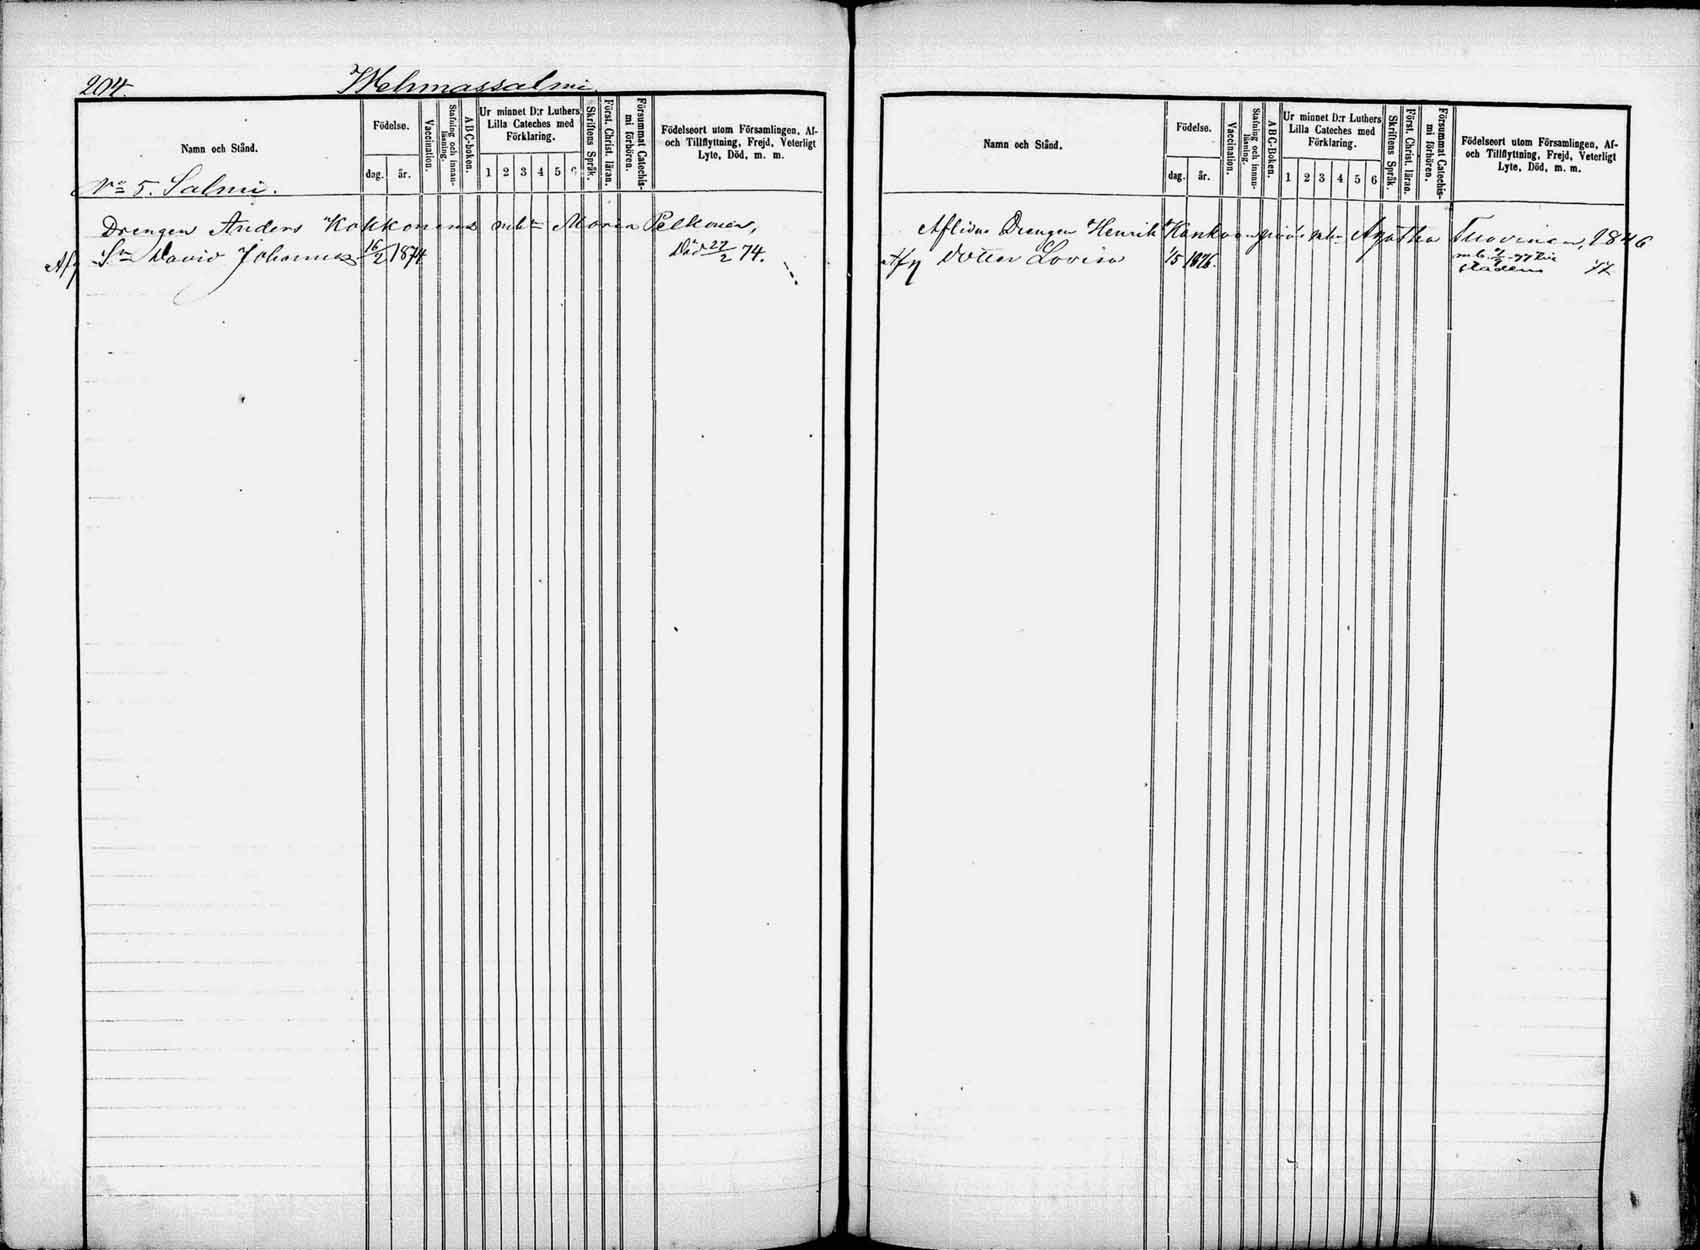 204.
Wehmassalmi.
Namn och Stånd.
Födelse.
dag.
år.
Vaccination.
Stafning och innan-
läsning.
ABC-boken.
Ur minnet D:r Luthers
Lilla Cateches med
Förklaring.
1 2 3 4 5 6
Skriftens Språk.
Först. Christ. läran.
Försummat Catechis-
mi förhören.
Födelseort utom Församlingen, Af-
och Tillflyttning, Frejd, Veterligt
Lyte, Död, m. m.
No 5. Salmi.
Drengen Anders Kokkonens m. h:u Maria Pelkonen,
S:n David Johannes 16/2 1874 Död 27/2 74.
Namn och Stånd.
Födelse.
dag.
år.
Vaccination.
Stafning och innan-
läsning.
ABC-Boken.
Ur minnet D:r Luthers
Lilla Cateches med
Förklaring.
1 2 3 4 5 6
Skriftens Språk.
Först. Christ. läran.
Försummat Catechis-
mi förhören.
Födelseort utom Församlingen, Af-
och Tillflyttning, Frejd, Veterligt
Lyte, Död, m. m.
Aflidne Drengen Henrik Agatha Tuovinen, 1846
Dotter Lovisa 1/5 1876.